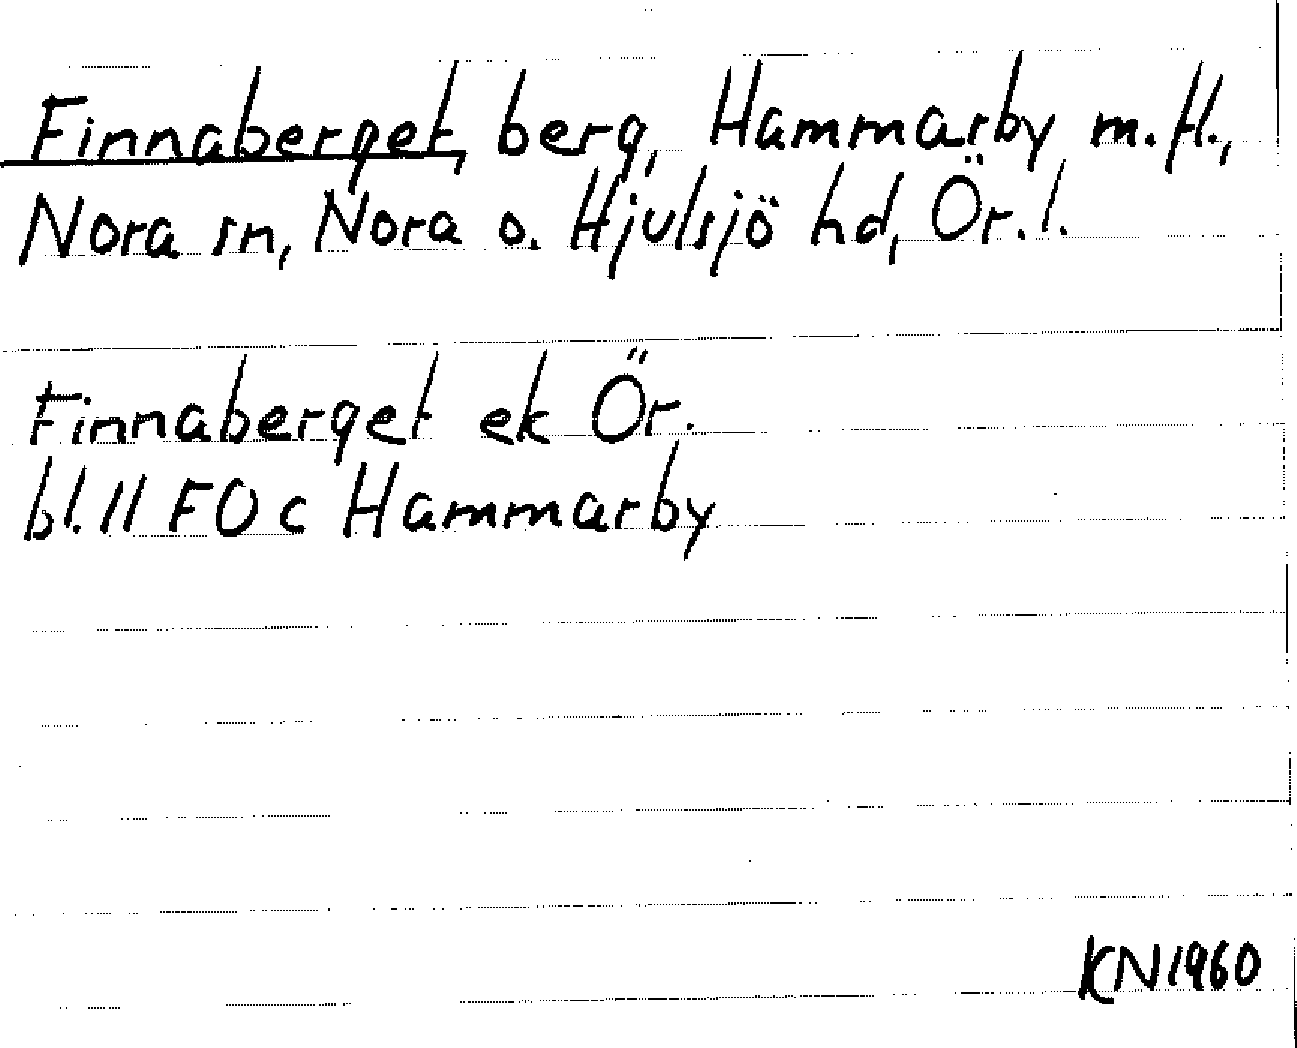 Finnaberget, berg, Hammarby m.fl.,
Nora sn, Nora o. Hjulsjö hd, Ör.l.
Finnaberget ek Ör.
bl.11 F0c Hammarby
KN1960